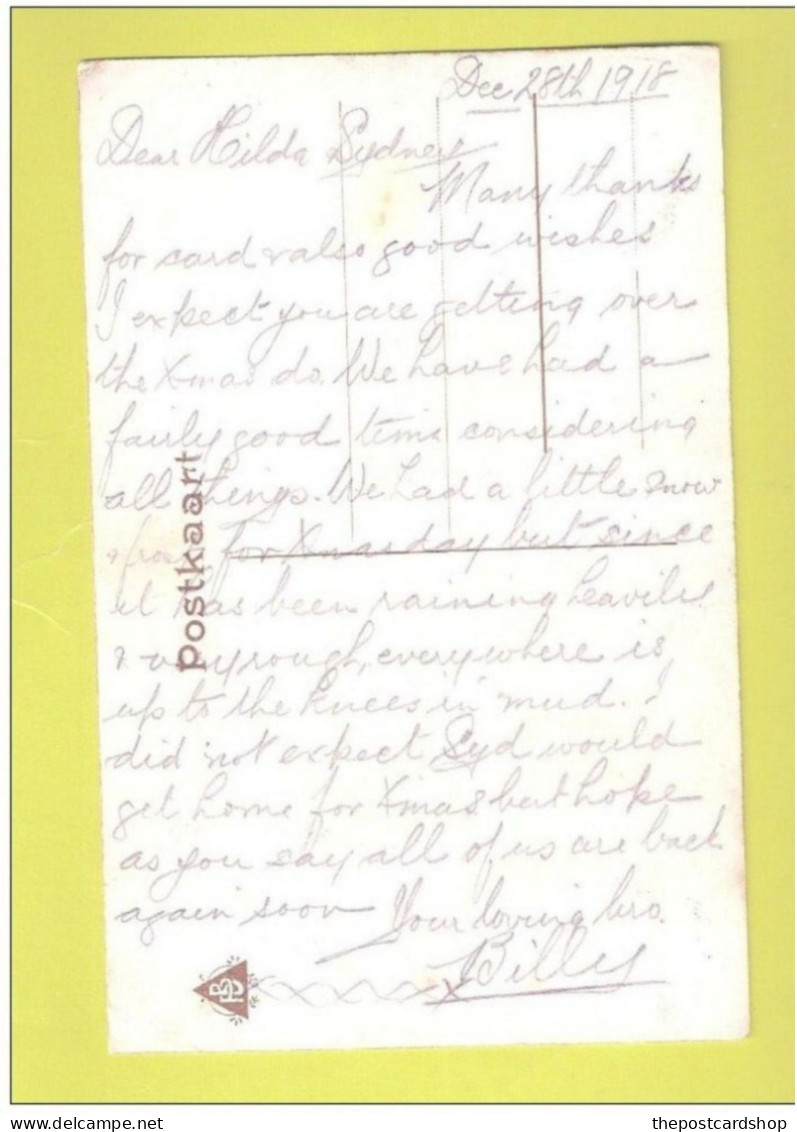 Dec 28th 1918
Dear Hilda Sydney
Many thanks
for card & also good wishes
I expect you are getting over
the Xmas do. We have had a
fairly good time considering
all things. We had a little snow
& frost for Xmas day but since
it has been raining heavily
& very rough, everywhere is
up to the knees in mud. I
did not expect Syd would
get home for Xmas but hope
as you say all of us are back
again soon Your loving bro.
Billy
X
Postkaart
delcampe.net
thepostcardshop